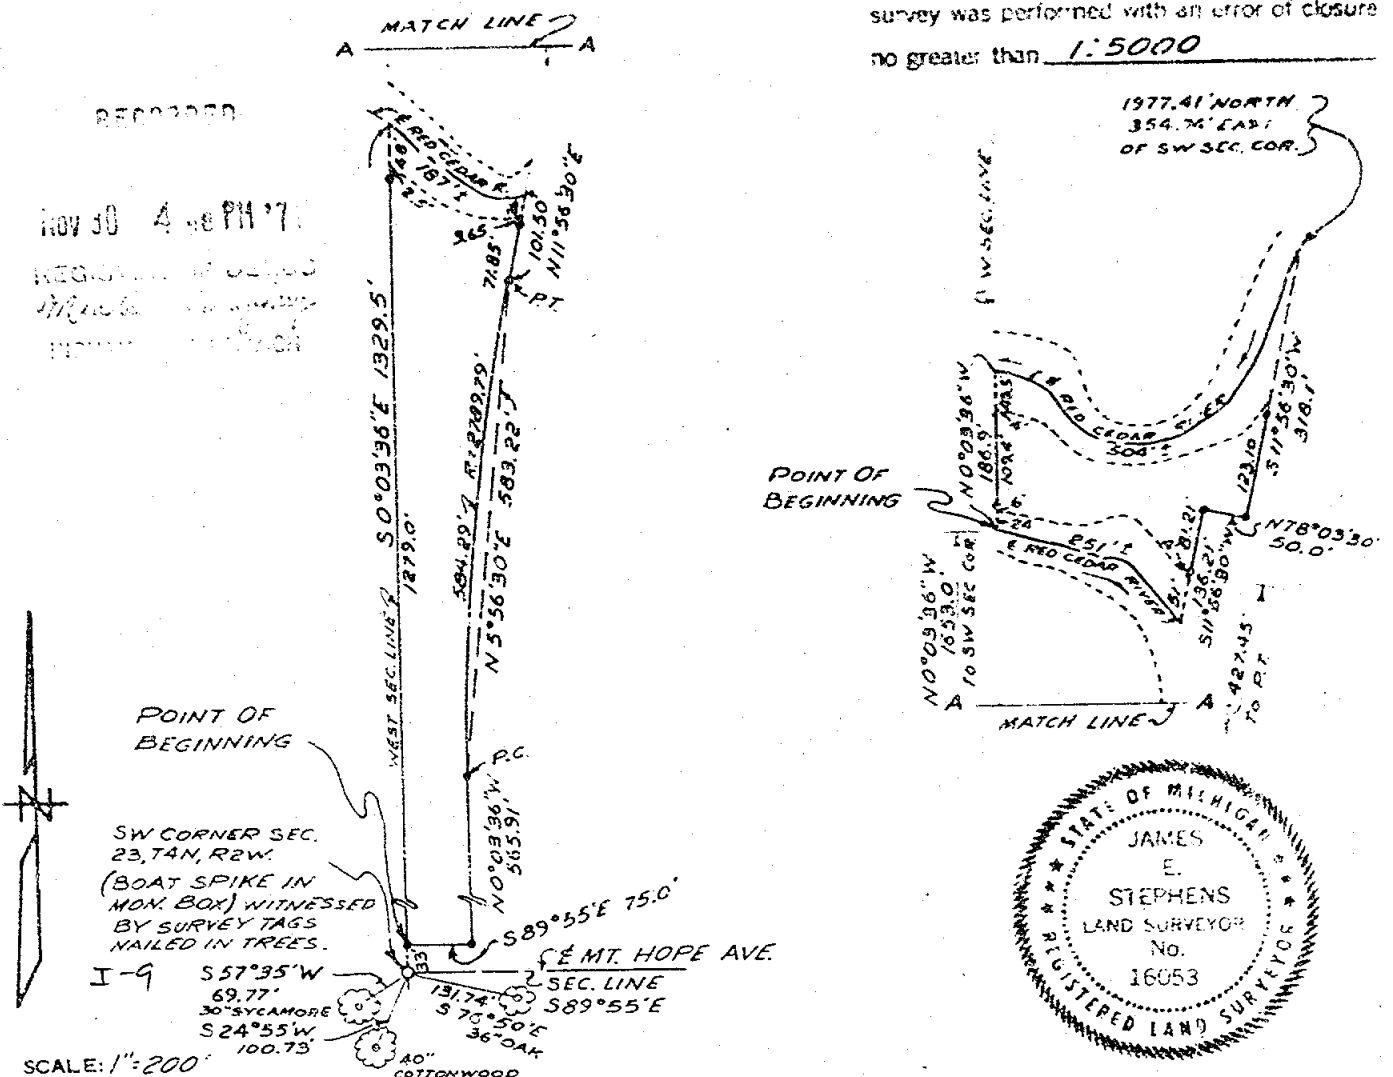 MATCH LINE
A A
survey was performed with an error of closure
no greater than 1:5000
RECORDED
NOV 30 4 PM '7
¢ RED CEDAR R.
187'±
48'
25'
965
71.85'
101.50'
N11°56'30"E
P.T.
S0°03'36"E 1329.5'
1279.0'
WEST SEC. LINE
584.29' R=2789.79'
N5°56'30"E 583.22'
P.C.
N0°03'36"W
565.91'
POINT OF
BEGINNING
SW CORNER SEC.
23, T4N, R2W.
(BOAT SPIKE IN
MON. BOX) WITNESSED
BY SURVEY TAGS
NAILED IN TREES.
I-9
S89°55'E 75.0'
33'
¢ MT. HOPE AVE.
SEC. LINE
S89°55'E
S57°35'W
69.77'
30" SYCAMORE
S24°55'W
100.73'
131.74'
S76°50'E
36" OAK
40"
COTTONWOOD
SCALE: 1"=200'
1977.41' NORTH
354.74' EAST
OF SW SEC. COR.
W SEC. LINE
¢ RED CEDAR RIVER
504'±
N0°03'36"W
186.9'
S11°56'30"W
318.1'
123.10
POINT OF
BEGINNING
24
251'±
¢ RED CEDAR RIVER
81.21'
136.21'
S11°56'30"W
51'
N78°03'30"
50.0'
N0°03'36"W
1653.0'
TO SW SEC COR.
427.45'
TO P.T.
A A
MATCH LINE
STATE OF MICHIGAN
JAMES
E.
STEPHENS
LAND SURVEYOR
No.
16053
REGISTERED LAND SURVEYOR